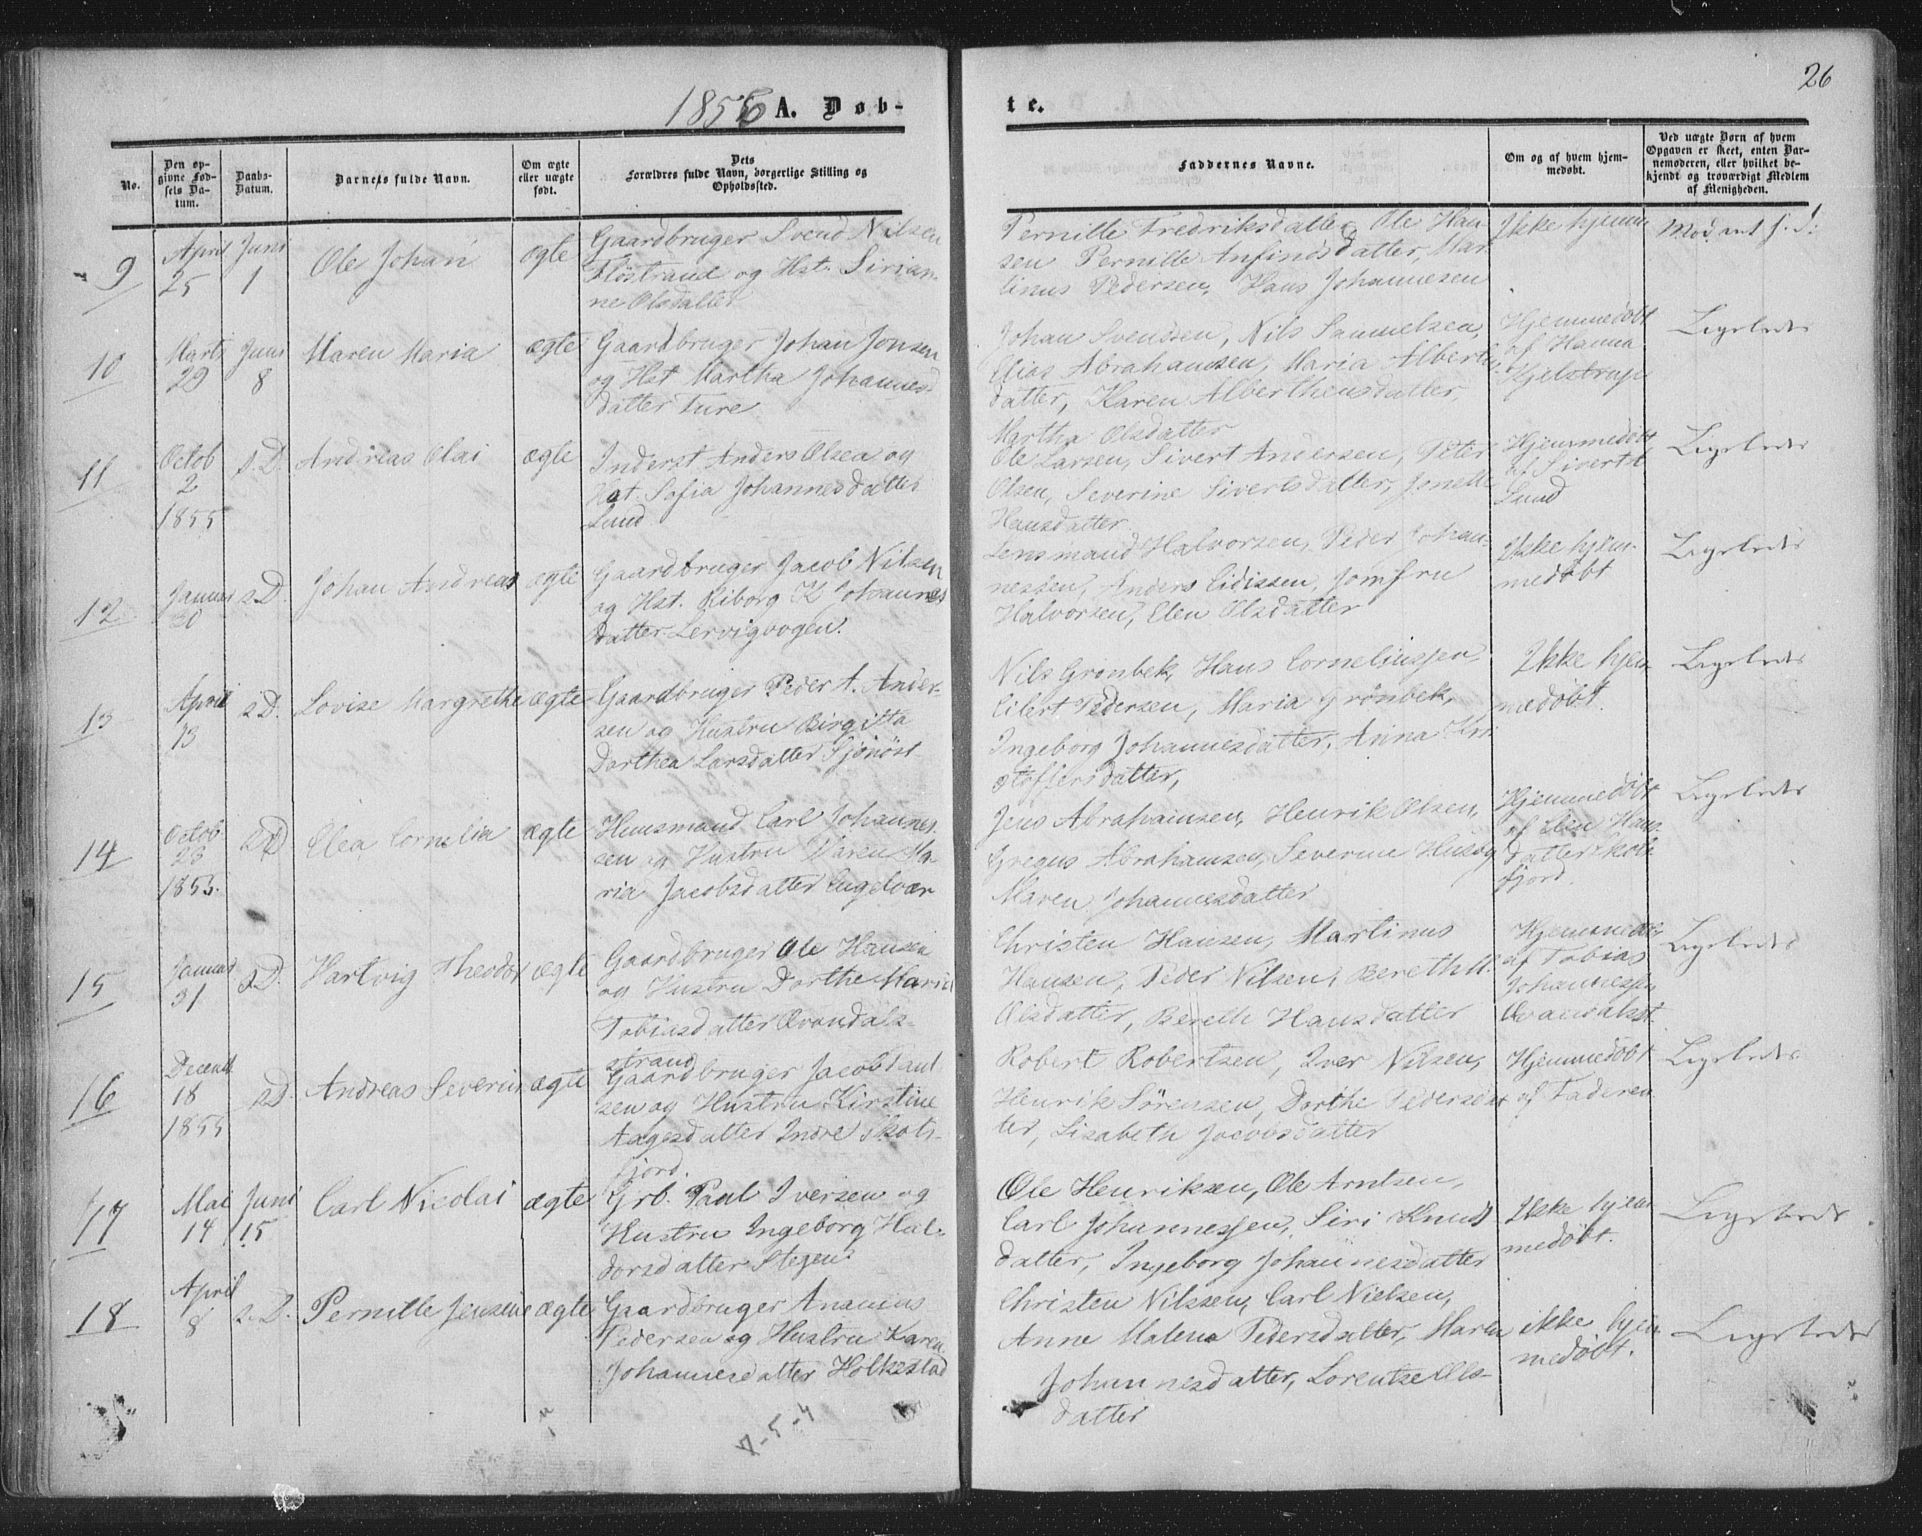 26
1856 A. Døb-
te.
No.
Den opgivne Fødsels Datum.
Daabs-Datum.
Barnets fulde Navn.
Om ægte eller uægte født.
Dets Forældres fulde Navn, borgerlige Stilling og Opholdssted.
Faddernes Navne.
Om og af hvem hjemmedøbt.
Ved uægte Børn af hvem Opgaven er skeet, enten Barnemoderen, eller hvilket bekjendt og troværdigt Medlem af Menigheden.
9
April 25
Juni 1
Ole Johan
ægte
Gaardbruger Svend Nilsen
Flostrand og Hst. Sirian-
ne Olsdatter
Pernille Fredriksdatter, Ole Han
sen Pernille Anfindsdatter, Mar
tinus Pedersen, Hans Johannesen
Ikke hjem
10
Marts 29
Juni 8
Maren Maria
ægte
Gaardbruger Johan Jonsen
og Hst Martha Johannes-
datter Ture
Johan Svendsen, Nils Samuelsen,
Elias Abrahamsen, Maria Alberts
datter, Karen Alberthensdatter,
Martha Olsdatter
Hjemmedøbt
af Hanna
Hjelstrup
Ligeledes
11
Octob 2 1855
s. D.
Andreas Olai
ægte
Inderst Anders Olsen og
Hst. Sofia Johannesdatter
Lund
Ole Larsen, Sivert Andersen, Peter
Olsen, Severine Sivertsdatter, Jonelle
Hansdatter
Hjemmedøbt
af Sivert A
Lund
Ligeledes
12
Januar 30
s. D.
Johan Andreas
ægte
Gaardbruger Jacob Nilsen
og Hst. Riborg K Johannes
datter Lervigvogen.
Lensmand Halvorsen, Peder Johan-
nessen, Anders Eidissen, Jomfru
Halvorsen, Elen Olsdatter
Ikke hjem-
medøbt
Ligeledes
13
April 13
s D.
Lovise Margrethe
ægte
Gaardbruger Peder A. Ander-
sen og Hustru Birgitta
Dorthea Larsdatter Sjonöst
Nils Grönbek, Hans Corneliussen
Eilert Pedersen, Maria Grönbek,
Ingeborg Johannesdatter, Anna Kri
stoffersdatter,
Ikke hjem
medøbt.
Ligeledes
14
Octob 28 1855.
s D
Elea Cornelia
ægte
Huusmand Carl Johannes
sen og Hustru Maren Ma-
ria Jacobsdatter Engelvær
Jens Abrahamsen, Henrik Olsen,
Gregus Abrahamsen, Severine Husby
Maren Johannesdatter
Hjemmedøbt
af Elen Hans
datter Skots
fjord
Ligeledes
15
Januar 31
s D.
Hartvig Theodor
ægte
Gaardbruger Ole Hansen
og Hustru Dorthe Maria
Tobiasdatter Qvandals-
strand
Christen Hansen, Martinus
Hansen, Peder Nilsen, Bereth M.
Olsdatter, Berethe Hansdatter
Hjemmedøbt
af Tobias
Johannessen
Qvandalst.
Ligeledes
16
Decemb 18 1855
s D.
Andreas Severin
ægte
Gaardbruger Jacob Paul
sen og Hustru Kirstine
Aagesdatter Indre Skots-
fjord.
Robert Robertsen, Iver Nilsen,
Henrik Sörensen, Dorthe Pedersdat
ter, Lisabeth Jacobsdatter
Hjemmedøbt
af Faderen
Ligeledes
17
Mai 14
Juni 15
Carl Nicolai
ægte
Grb. Paul Iversen og
Hustru Ingeborg Hal-
dorsdatter Stegen
Ole Henriksen, Ole Arntsen,
Carl Johannessen, Siri Knuds
datter, Ingeborg Johannesdatter
Ikke hjem
medøbt.
Ligeledes
18
April 8
s. D.
Pernille Jensine
ægte
Gaardbruger Ananias
Pedersen og Hustru Karen
Johannesdatter Holkestad
Christen Nilssen, Carl Nielsen,
Anne Malena Pedersdatter, Maren
Johannesdatter, Lorentze Ols-
datter
ikke hjem
medøbt.
Ligeledes
7-5-4